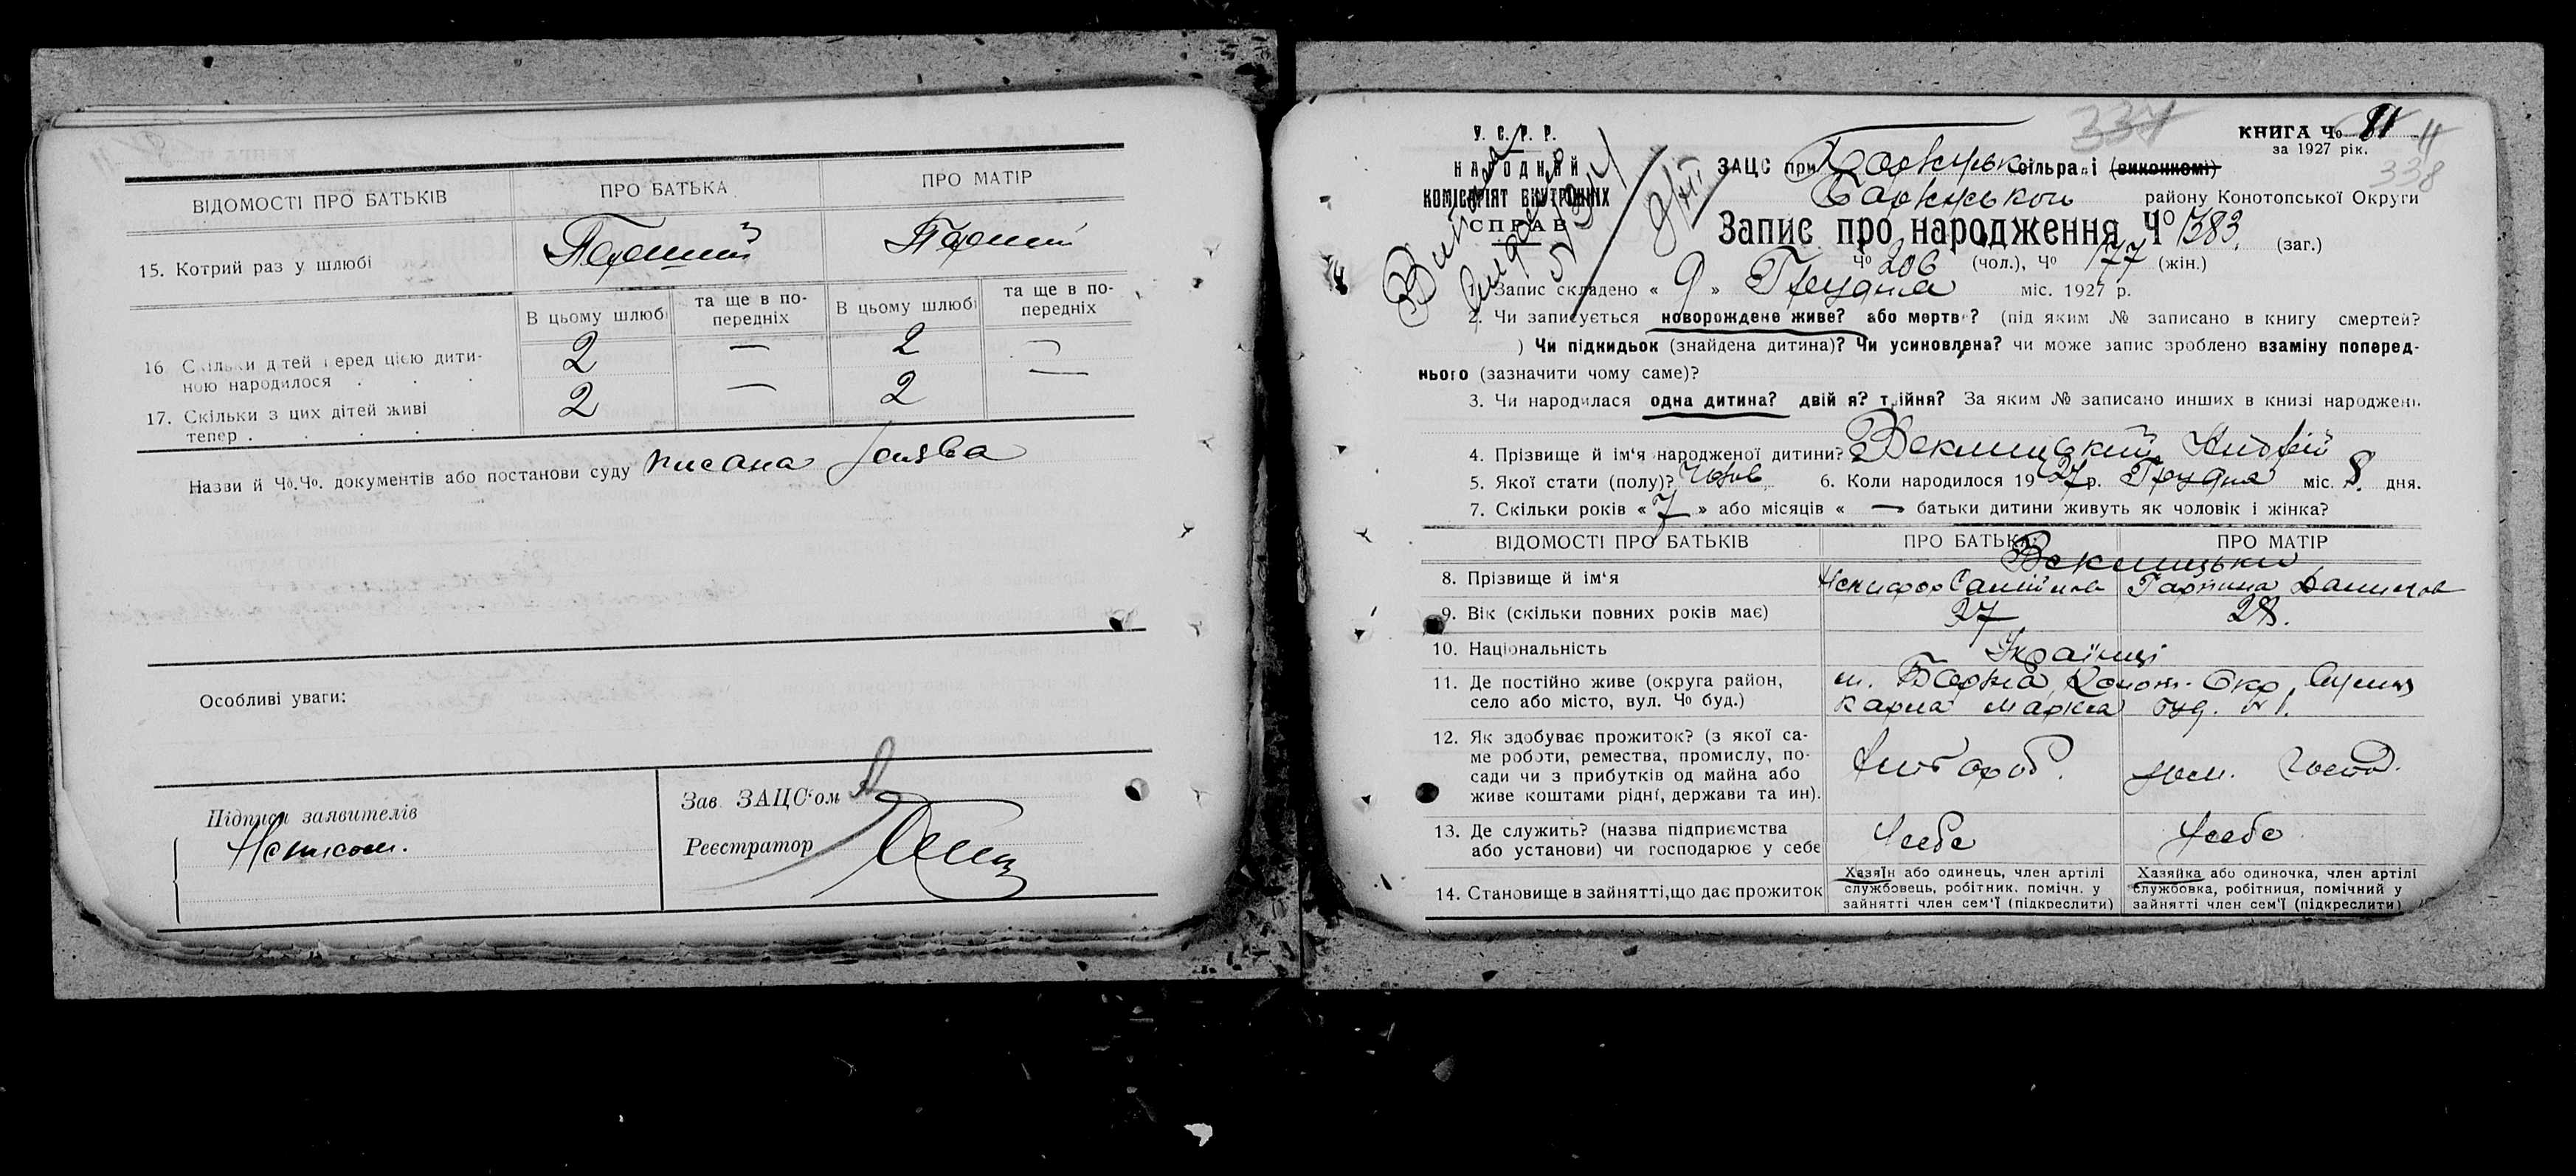 ВІДОМОСТІ ПРО БАТЬКІВ
ПРО БАТЬКА
ПРО МАТІР
15. Котрий раз у шлюбі
Перший
Перший
В цьому шлюбі
та ще в по-
передніх
В цьому шлюбі
та ще в по-
передніх
16. Скільки дітей перед цією дити-
ною народилося . . .
2 — 2 —
17. Скільки з цих дітей живі
тепер . . . . .
2 — 2 —
Назви й Чо.Чо. документів або постанови суду писана заява
Особливі уваги:
Підписи заявителів
Неписьм.
Зав. ЗАЦС'ом
Реєстратор
У. С. Р. Р.
НАРОДНИЙ
КОМІСАРІЯТ ВНУТРІШНІХ
СПРАВ
337
КНИГА Чо 11
11
за 1927 рік.
338
ЗАЦС при сільраді (виконкомі)
району Конотопської Округи
Запис про народження Чо 383 (заг.)
Чо 206 (чол.), Чо 177 (жін.)
1. Запис складено « 9 » Грудня міс. 1927 р.
2. Чи записується новорождене живе? або мертве? (під яким № записано в книгу смертей?
) Чи підкидьок (знайдена дитина)? Чи усиновлена? чи може запис зроблено взаміну поперед-
нього (зазначити чому саме)?
3. Чи народилася одна дитина? двійня? трійня? За яким № записано инших в книзі народжень
4. Прізвище й ім'я народженої дитини? Веклицький Андрій
5. Якої стати (полу)? Чолов 6. Коли народилося 1927 р. Грудня міс. 8 дня.
7. Скільки років « 7 » або місяців « — » батьки дитини живуть як чоловік і жінка?
ВІДОМОСТІ ПРО БАТЬКІВ
ПРО БАТЬКА
ПРО МАТІР
Веклицьки
8. Прізвище й ім'я
Никифор Самійлов
Гарпина Данилов
9. Вік (скільки повних років має)
27
28.
10. Національність
Українці
11. Де постійно живе (округа район,
село або місто, вул. Чо буд.)
Конот. Окр, вулиця
Карла Маркса буд. №1.
12. Як здобуває прожиток? (з якої са-
ме роботи, ремества, промислу, по-
сади чи з прибутків од майна або
живе коштами рідні, держави та ин).
Хлібороб.
дом. господ.
13. Де служить? (назва підприємства
або установи) чи господарює у себе
У себе
У себе
14. Становище в зайнятті, що дає прожиток
Хазяїн або одинець, член артілі
службовець, робітник, помічн. у
зайнятті член сем'ї (підкреслити)
Хазяйка або одиночка, член артілі
службовка, робітниця, помічний у
зайнятті член сем'ї (підкреслити)